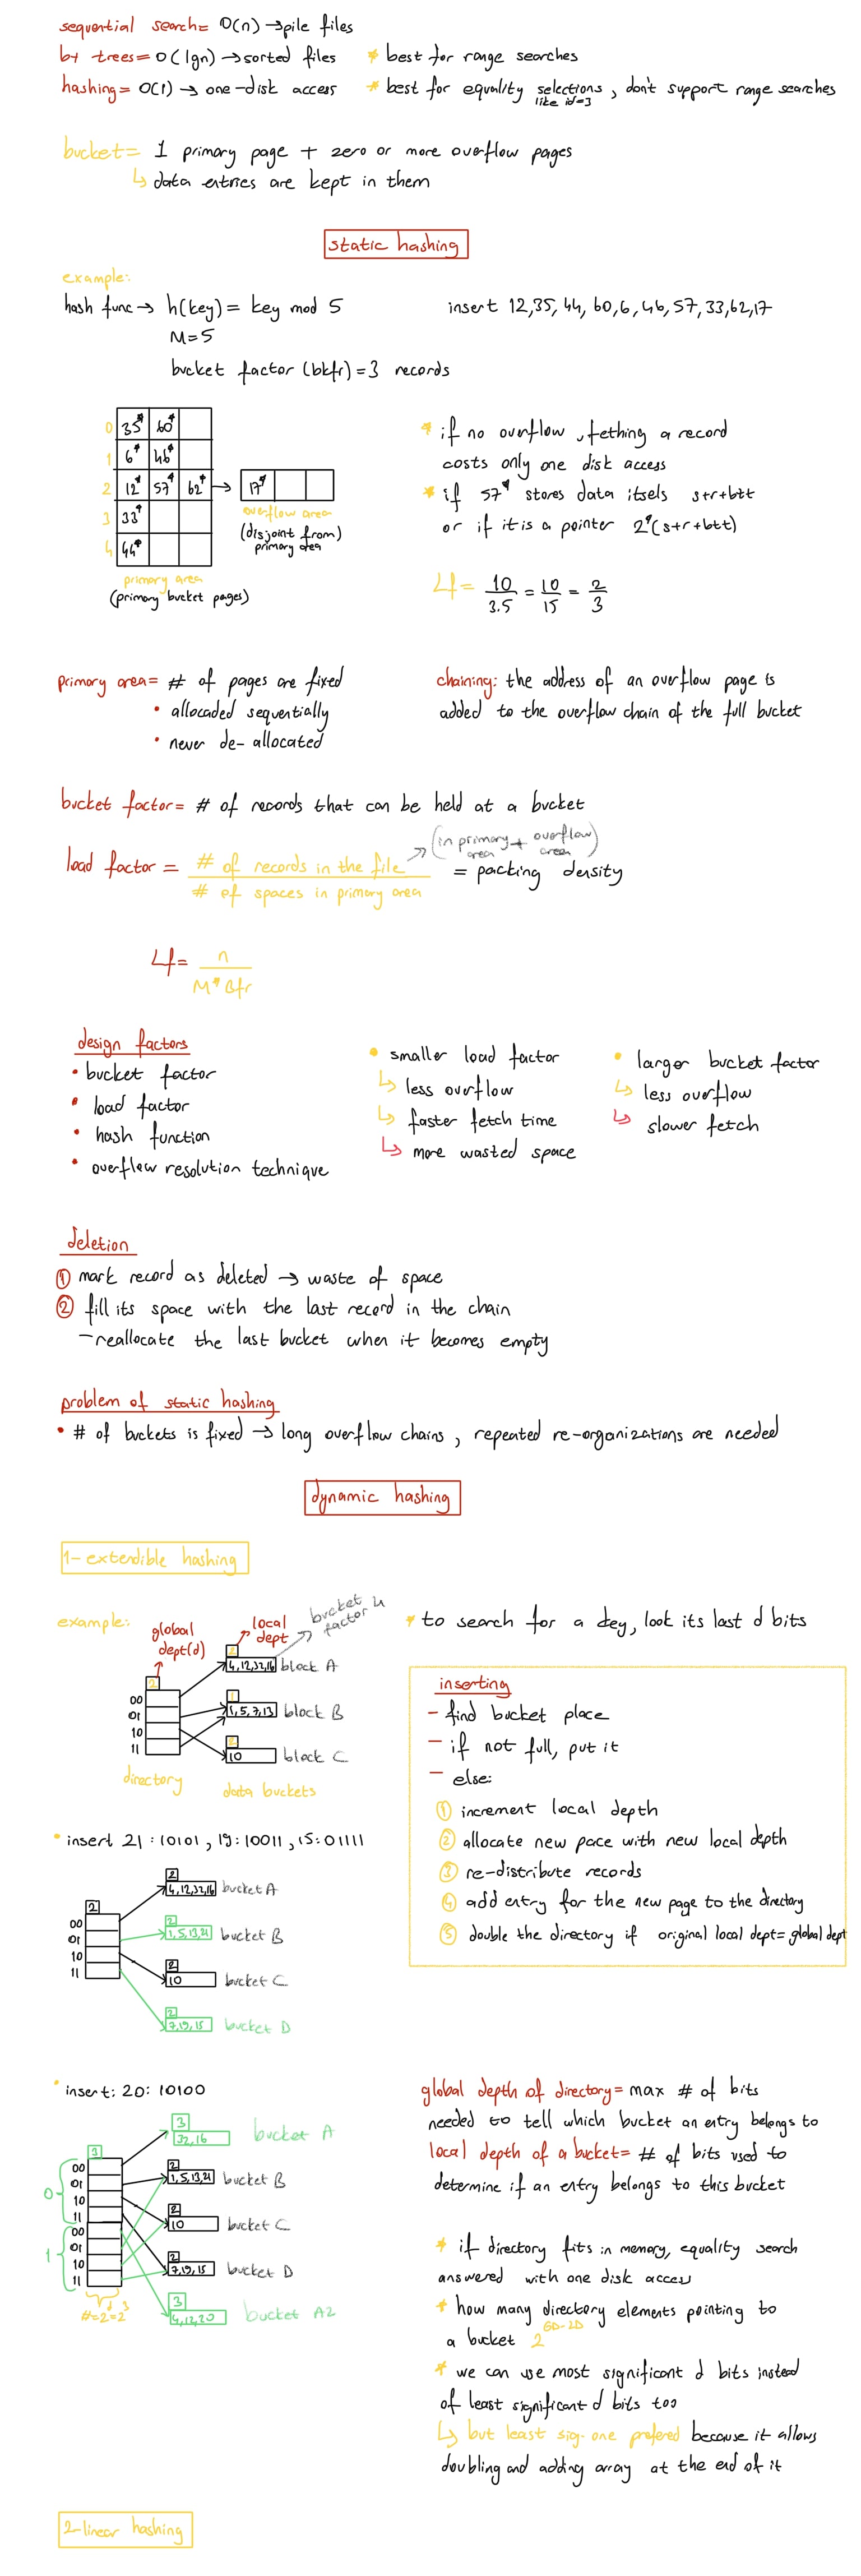 sequential search= O(n) →pile files
b+ trees= O(lgn) →sorted files * best for range searches
hashing= O(1) → one-disk access * best for equality selections, don't support range searches
like id=3
bucket= 1 primary page + zero or more overflow pages
↳ data entries are kept in them
static hashing
example:
hash func → h(key)= key mod 5 insert 12,35,44,60,6,46,57,33,62,17
M=5
bucket factor (bkfr)=3 records
0 35* 60*
1 6* 46*
2 12* 57* 62* → 17*
3 33*
4 44*
overflow area
(disjoint from)
primary area
primary area
(primary bucket pages)
* if no overflow, fething a record
costs only one disk access
* if 57* stores data itsels s+r+btt
or if it is a pointer 2*(s+r+btt)
Lf= 10/3.5 = 10/15 = 2/3
primary area= # of pages are fixed
• allocaded sequentially
• never de-allocated
chaining: the address of an overflow page is
added to the overflow chain of the full bucket
bucket factor= # of records that can be held at a bucket
load factor = # of records in the file / # of spaces in primary area = packing density
→ (in primary area + overflow area)
Lf= n / M*Bfr
design factors
• bucket factor
• load factor
• hash function
• overflow resolution technique
• smaller load factor
↳ less overflow
↳ faster fetch time
↳ more wasted space
• larger bucket factor
↳ less overflow
↳ slower fetch
deletion
① mark record as deleted → waste of space
② fill its space with the last record in the chain
-reallocate the last bucket when it becomes empty
problem of static hashing
• # of buckets is fixed → long overflow chains, repeated re-organizations are needed
dynamic hashing
1- extendible hashing
example:
global dept(d)
local dept
bucket factor 4
2
00
01
10
11
directory
2
4,12,32,16 block A
1
1,5,7,13 block B
2
10 block C
data buckets
* to search for a key, look its last d bits
inserting
- find bucket place
- if not full, put it
- else:
① increment local depth
② allocate new pace with new local depth
③ re-distribute records
④ add entry for the new page to the directory
⑤ double the directory if original local dept= global dept
• insert 21:10101, 19:10011, 15:01111
2
00
01
10
11
2
4,12,32,16 bucket A
2
1,5,13,21 bucket B
2
10 bucket C
2
7,19,15 bucket D
• insert: 20: 10100
3
0
00
01
10
11
1
00
01
10
11
3
32,16 bucket A
2
1,5,13,21 bucket B
2
10 bucket C
2
7,19,15 bucket D
3
4,12,20 bucket A2
#=2^d=2^3
global depth of directory= max # of bits
needed to tell which bucket an entry belongs to
local depth of a bucket= # of bits used to
determine if an entry belongs to this bucket
* if directory fits in memory, equality search
answered with one disk access
* how many directory elements pointing to
a bucket 2^GD-LD
* we can use most significant d bits instead
of least significant d bits too
↳ but least sig. one prefered because it allows
doubling and adding array at the end of it
2-linear hashing